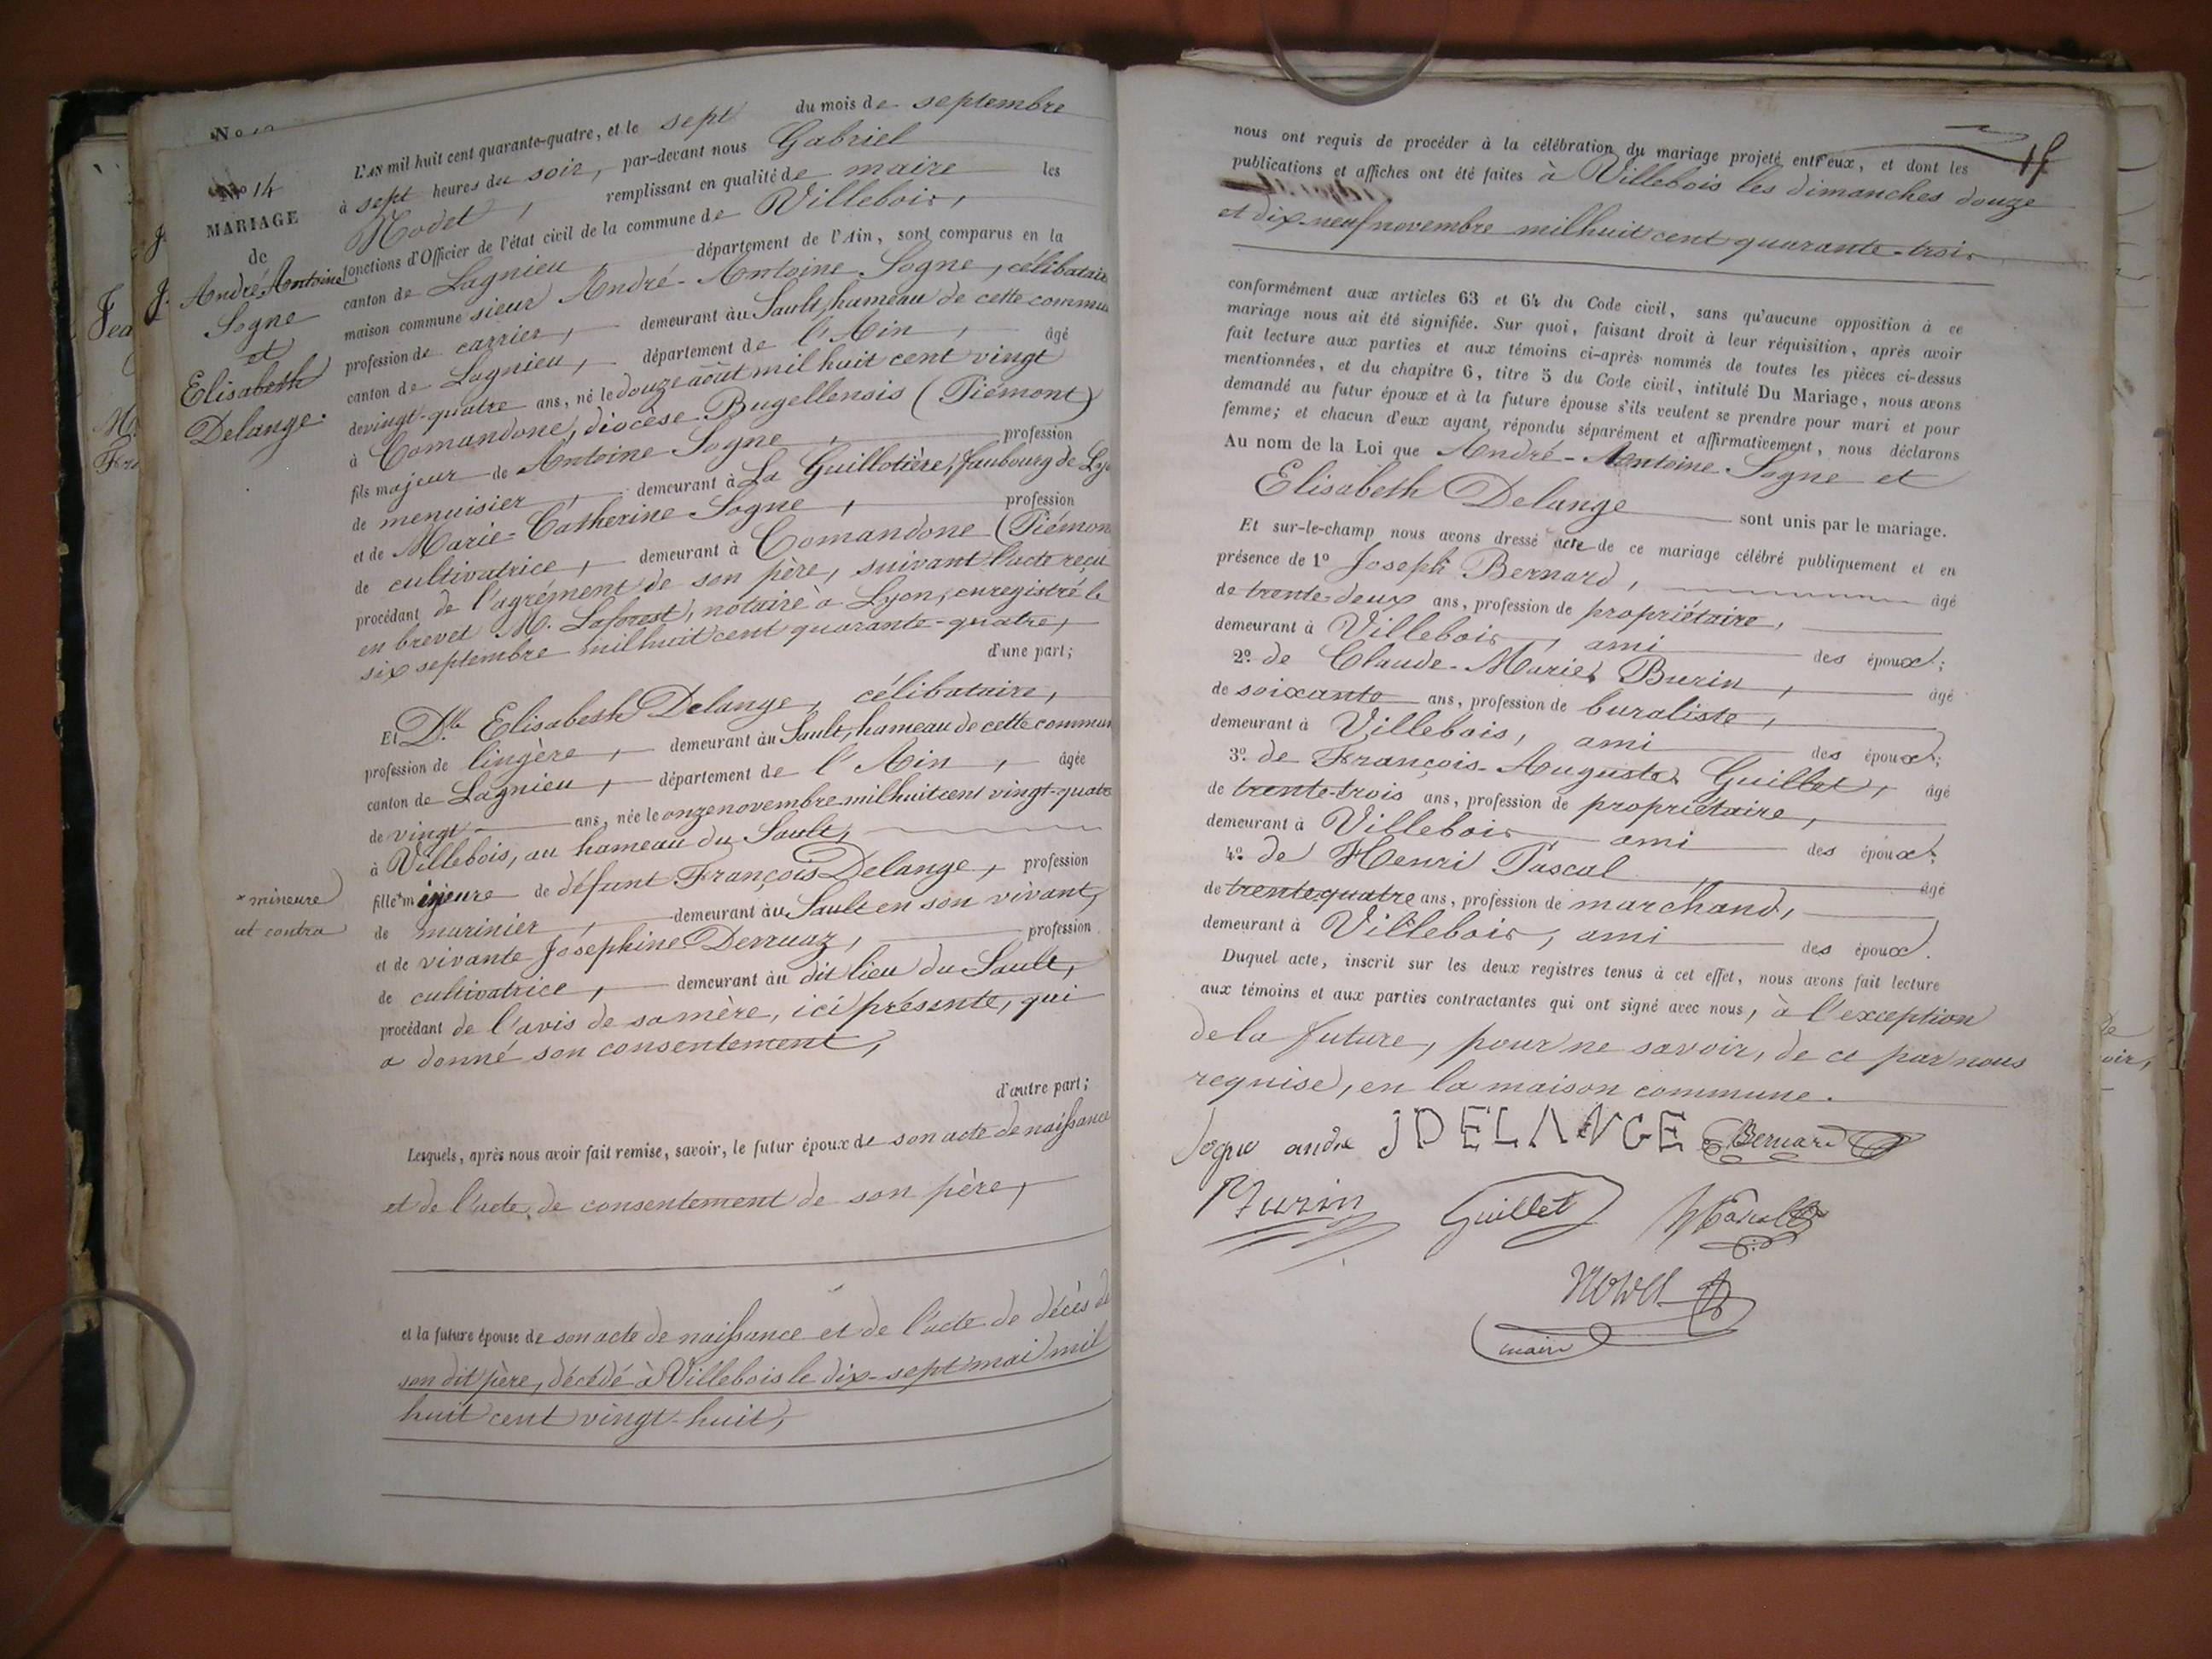 N° 14
MARIAGE
de
André-Antoine
Sogne
et
Elisabeth
Delange.
L'AN mil huit cent quarante-quatre, et le sept du mois de septembre
à sept heures du soir, par-devant nous Gabriel
Nodet, remplissant en qualité de maire les
fonctions d'Officier de l'état civil de la commune de Villebois,
canton de Lagnieu, département de l'Ain, sont comparus en la
maison commune sieur André-Antoine Sogne, célibataire
profession de carrier, demeurant au Sault, hameau de cette commu
canton de Lagnieu, département de l'Ain, âgé
de vingt-quatre ans, né le douze août mil huit cent vingt
à Comandone, diocèse Bugellensis (Piémont)
fils majeur de Antoine Sogne, profession
de menuisier, demeurant à La Guillotière, faubourg de Ly
et de Marie-Catherine Sogne, profession
de cultivatrice, demeurant à Comandone (Piémon
procédant de l'agrément de son père, suivant l'acte reçu
en brevet M. Laforest, notaire à Lyon, enregistré le
six septembre mil huit cent quarante-quatre,
d'une part;
Et Dlle Elisabeth Delange, célibataire,
profession de lingère, demeurant au Sault, hameau de cette commun
canton de Lagnieu, département de l'Ain, âgée
de vingt ans, née le onze novembre mil huit cent vingt-quatre
à Villebois, au hameau du Sault,
× mineure
fille majeure de défunt François Delange, profession
de marinier, demeurant au Sault en son vivant,
et de vivante Josephine Derruaz, profession
de cultivatrice, demeurant au dit lieu du Sault,
procédant de l'avis de sa mère, ici présente, qui
a donné son consentement,
d'autre part;
Lesquels, après nous avoir fait remise, savoir, le futur époux de son acte de naissance
et de l'acte de consentement de son père,
et la future épouse de son acte de naissance et de l'acte de décès de
son dit père, décédé à Villebois le dix-sept mai mil
huit cent vingt-huit,
15
nous ont requis de procéder à la célébration du mariage projeté entr'eux, et dont les
publications et affiches ont été faites à Villebois les dimanches douze
et dix-neuf novembre mil huit cent quarante-trois
conformément aux articles 63 et 64 du Code civil, sans qu'aucune opposition à ce
mariage nous ait été signifiée. Sur quoi, faisant droit à leur réquisition, après avoir
fait lecture aux parties et aux témoins ci-après nommés de toutes les pièces ci-dessus
mentionnées, et du chapitre 6, titre 5 du Code civil, intitulé Du Mariage, nous avons
demandé au futur époux et à la future épouse s'ils veulent se prendre pour mari et pour
femme; et chacun d'eux ayant répondu séparément et affirmativement, nous déclarons
Au nom de la Loi que André-Antoine Sogne et
Elisabeth Delange sont unis par le mariage.
Et sur-le-champ nous avons dressé acte de ce mariage célébré publiquement et en
présence de 1° Joseph Bernard, âgé
de trente-deux ans, profession de propriétaire,
demeurant à Villebois, ami des époux;
2° de Claude-Marie Burin, âgé
de soixante ans, profession de buraliste,
demeurant à Villebois, ami des époux;
3° de François-Auguste Guillet, âgé
de trente-trois ans, profession de propriétaire,
demeurant à Villebois ami des époux;
4° de Henri Pascal âgé
de trente-quatre ans, profession de marchand,
demeurant à Villebois, ami des époux.
Duquel acte, inscrit sur les deux registres tenus à cet effet, nous avons fait lecture
aux témoins et aux parties contractantes qui ont signé avec nous, à l'exception
de la future, pour ne savoir, de ce par nous
requise, en la maison commune.
andre JDELANGE Bernard
Burin Guillet
maire